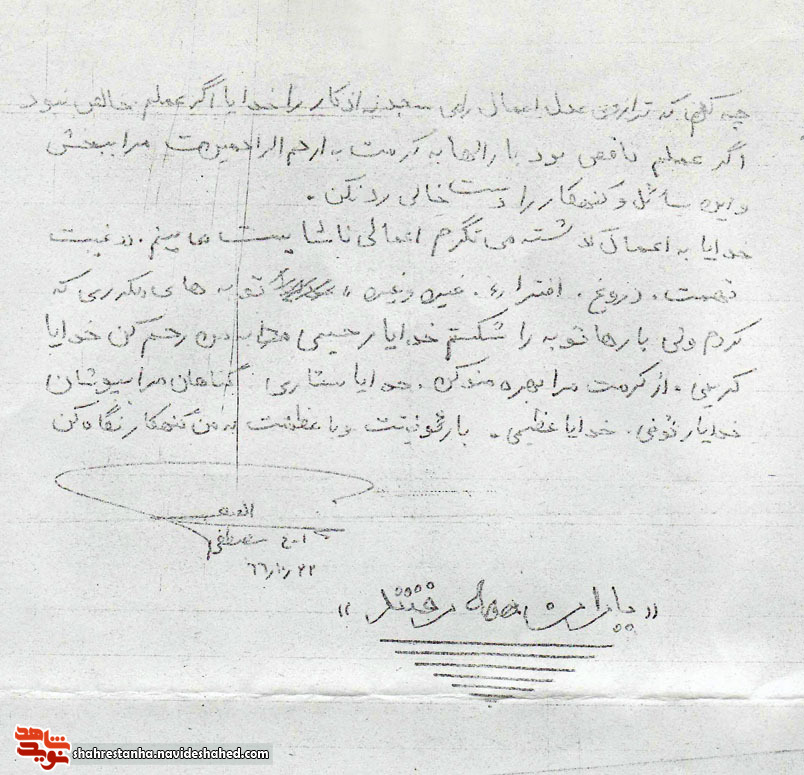 چه کنم که ترازوی عدل اعمال را می سنجد نه اذکار را خدایا اگر عملم خالص نبود
اگر عملم ناقص بود بارالها به کرمت به ارحم الراحمینیت مرا ببخش
و این سائل و گنهکار را دست خالی رد نکن .
خدایا به اعمال گذشته می نگرم اعمالی ناشایست می بینم . ,, غیبت
تهمت . دروغ . افتراء . غیره و غیره ,, توبه های مکرری که
کردم ولی بارها توبه را شکستم خدایا رحیمی به من رحم کن خدایا
کریمی . از کرمت مرا بهره مند کن . خدایا ستاری گناهان مرا بپوشان
خدایا رئوفی . خدایا عظیمی . با رئوفیتت و با عظمتت به من گنهکار نگاه کن
مصطفی
۶۶/۱۰/۲۲
« یاران همه رفتند »
نوید شاهد
shahrestanha.navideshahed.com